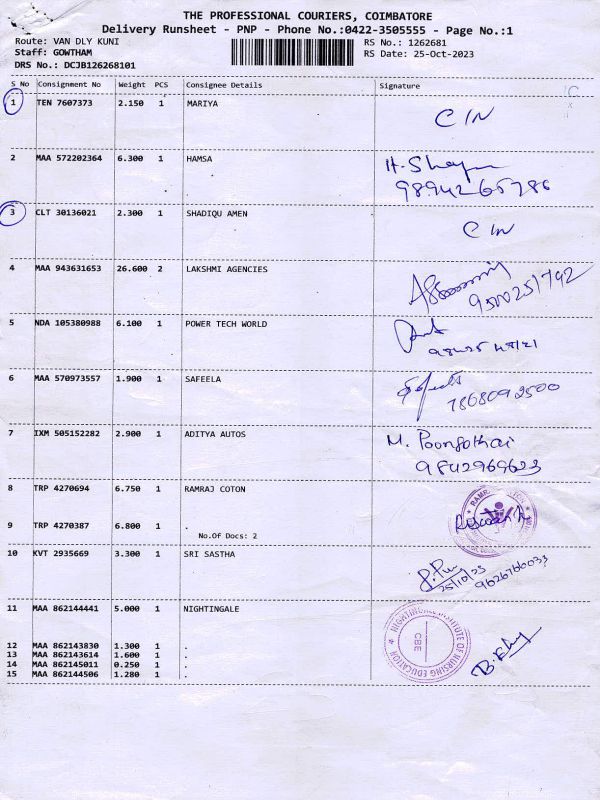 THE PROFESSIONAL COURIERS, COIMBATORE
Delivery Runsheet - PNP - Phone No.:0422-3505555 - Page No.:1
Route: VAN DLY KUNI RS No.: 1262681
Staff: GOWTHAM RS Date: 25-Oct-2023
DRS No.: DCJB126268101
S No Consignment No Weight PCS Consignee Details Signature
1 TEN 7607373 2.150 1 MARIYA C IN
2 MAA 572202364 6.300 1 HAMSA H. Shayn
9894265786
3 CLT 30136021 2.300 1 SHADIQU AMEN C IN
4 MAA 943631653 26.600 2 LAKSHMI AGENCIES
9500251792
5 NDA 105380988 6.100 1 POWER TECH WORLD
6 MAA 570973557 1.900 1 SAFEELA
7868092500
7 IXM 505152282 2.900 1 ADITYA AUTOS M. Poongothai
9842969623
8 TRP 4270694 6.750 1 RAMRAJ COTON
9 TRP 4270387 6.800 1 .
No.Of Docs: 2
10 KVT 2935669 3.300 1 SRI SASTHA
25/10/23 9626766033
11 MAA 862144441 5.000 1 NIGHTINGALE
NIGHTINGALE INSTITUTE OF NURSING EDUCATION
CBE
12 MAA 862143830 1.300 1 .
13 MAA 862143614 1.600 1 .
14 MAA 862145011 0.250 1 .
15 MAA 862144506 1.280 1 .